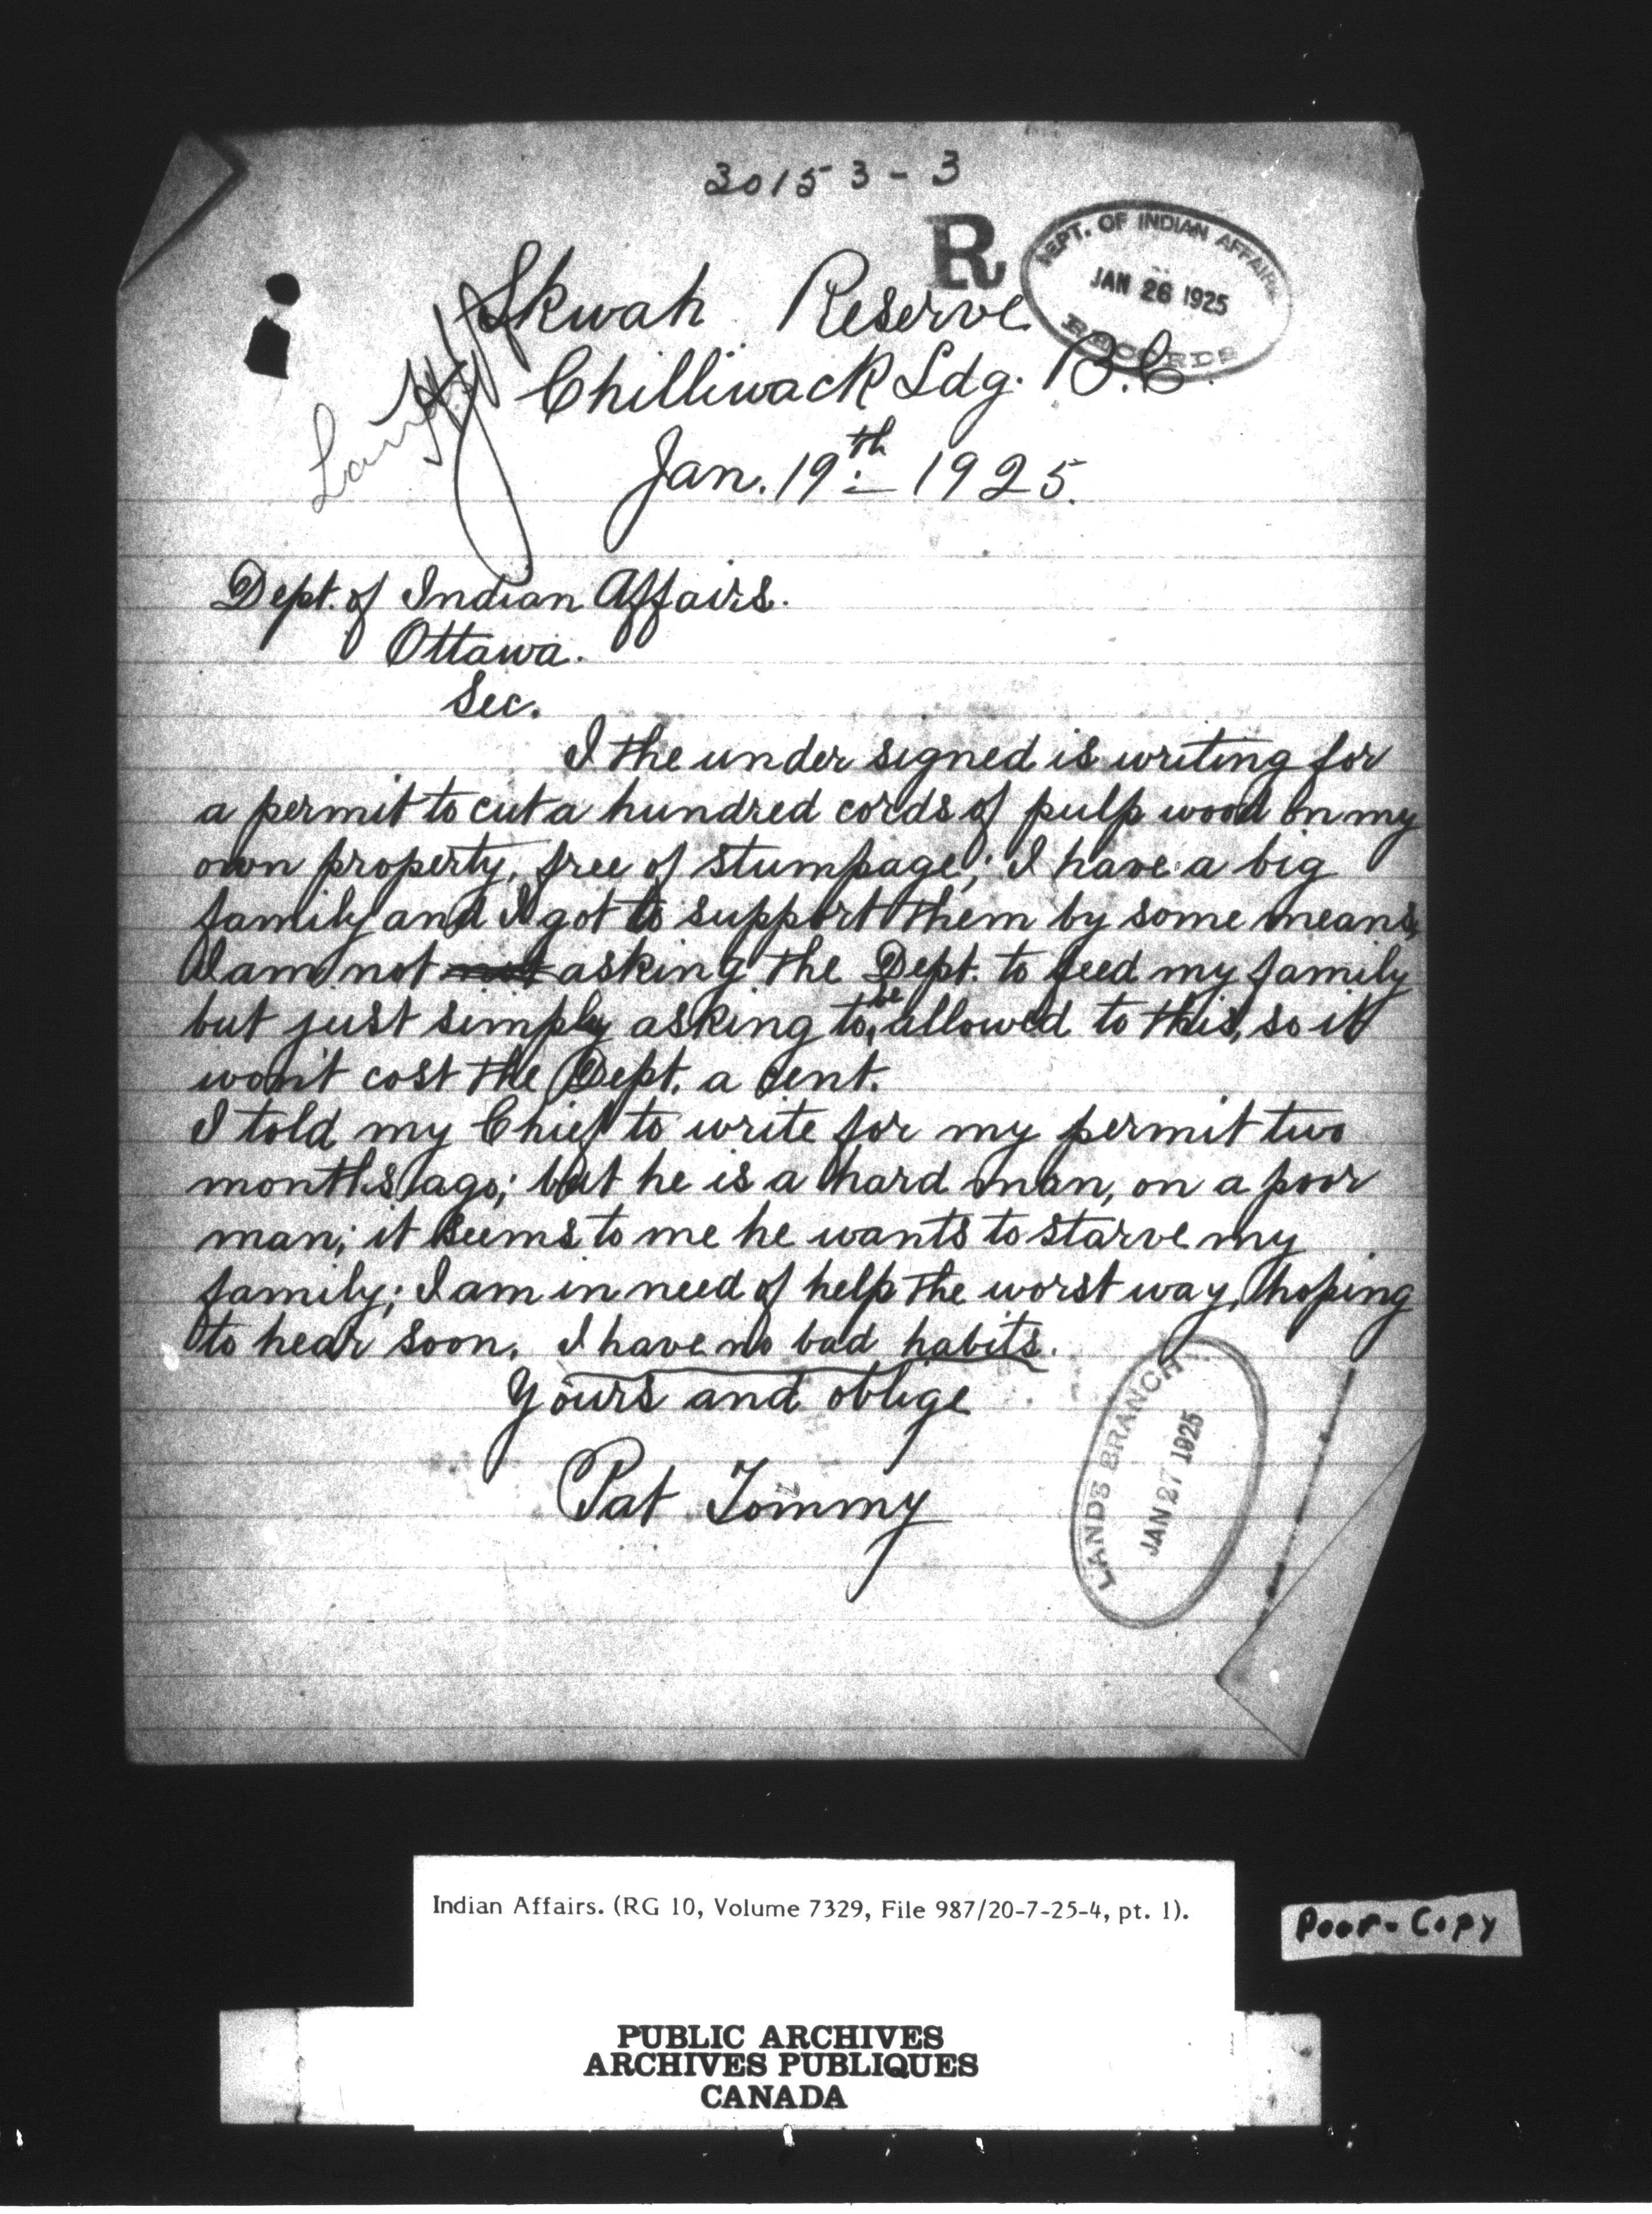 30153-3
R
DEPT. OF INDIAN AFFAIRS
JAN 26 1925
RECORDS
Skwah Reserve
Chilliwack Ldg. B.C.
Jan. 19th 1925.
Dept. of Indian Affairs.
Ottawa.
Sec.
I the under signed is writing for
a permit to cut a hundred cords of pulp wood on my
own property, free of stumpage; I have a big
family and I got to support them by some means,
I am not not asking the Dept. to feed my family
but just simply asking to be allowed to this, so it
won't cost the Dept. a cent.
I told my Chief to write for my permit two
months ago; but he is a hard man, on a poor
man; it seems to me he wants to starve my
family; I am in need of help the worst way, hoping
to hear soon. I have no bad habits.
Yours and oblige
Pat Tommy
LANDS BRANCH
JAN 27 1925
Indian Affairs. (RG 10, Volume 7329, File 987/20-7-25-4, pt. 1).
Poor-Copy
PUBLIC ARCHIVES
ARCHIVES PUBLIQUES
CANADA